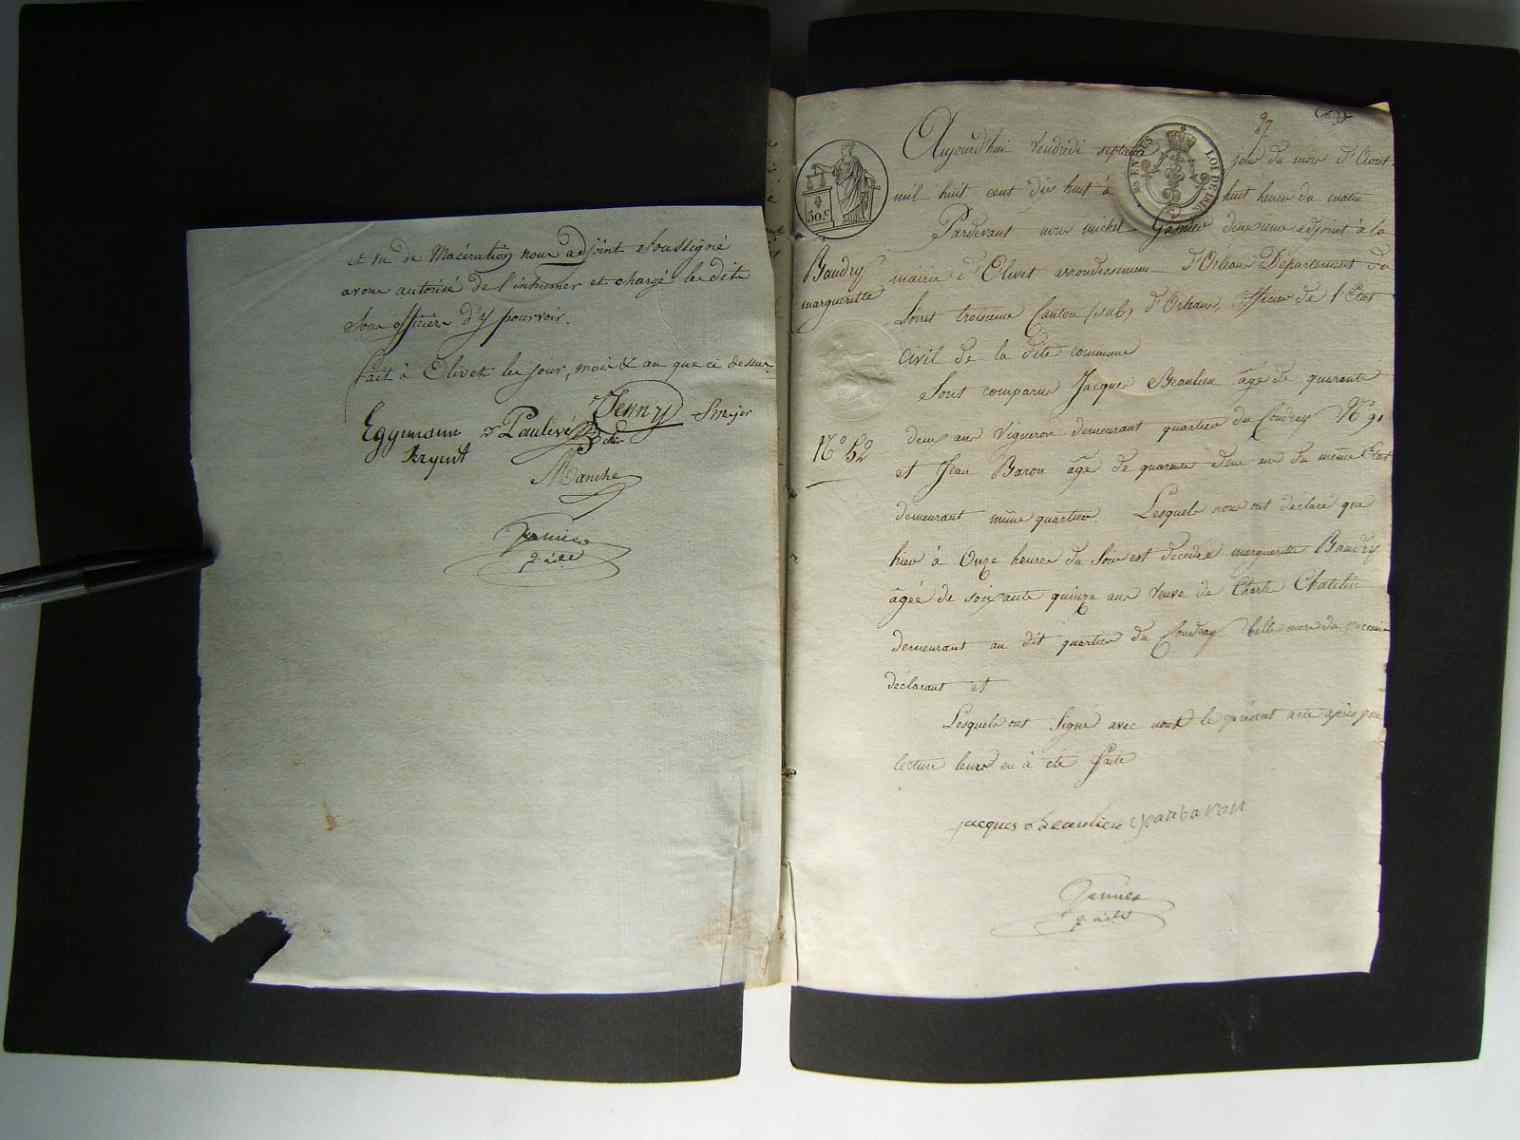 et vu de Macération nous adjoint Soussigné
avons autorisé de l'inhumer et chargé le dit
Sous officier d'y pourvoir.
fait à Olivet les jour, mois & an que ci dessus
Eggimann
Paulevé
Jenny
Sergent
Manche
Garnier
2e adt
87
30c
LOI DE 1816
Aujourd'hui Vendredi septième jour du mois d'Aout
mil huit cent dix huit à huit heures du matin
Pardevant nous michel Garnier deuxieme adjoint à la
Baudry
margueritte
mairie d'Olivet arrondissement d'Orléans Département du
Loiret troisieme Canton (sud) d'Orléans, officier de l'Etat
civil de la dite commune
Sont comparus Jacques Beaulieu âgé de quarante
N° 52
deux ans Vigneron demeurant quartier du Coudray N° 91
et Jean Baron âgé de quarante deux ans du même Etat
demeurant même quartier. Lesquels nous ont declaré que
hier à Onze heures du Soir est décédée margueritte Baudry
âgée de soixante quinze ans Veuve de Charle Chatelin
demeurant au dit quartier du Coudray belle mere du premier
declarant et
Lesquels ont Signé avec nous le présent acte après que
lecture leurs en à été faite
jacques beaulieu jean baron
Garnier
2e adt